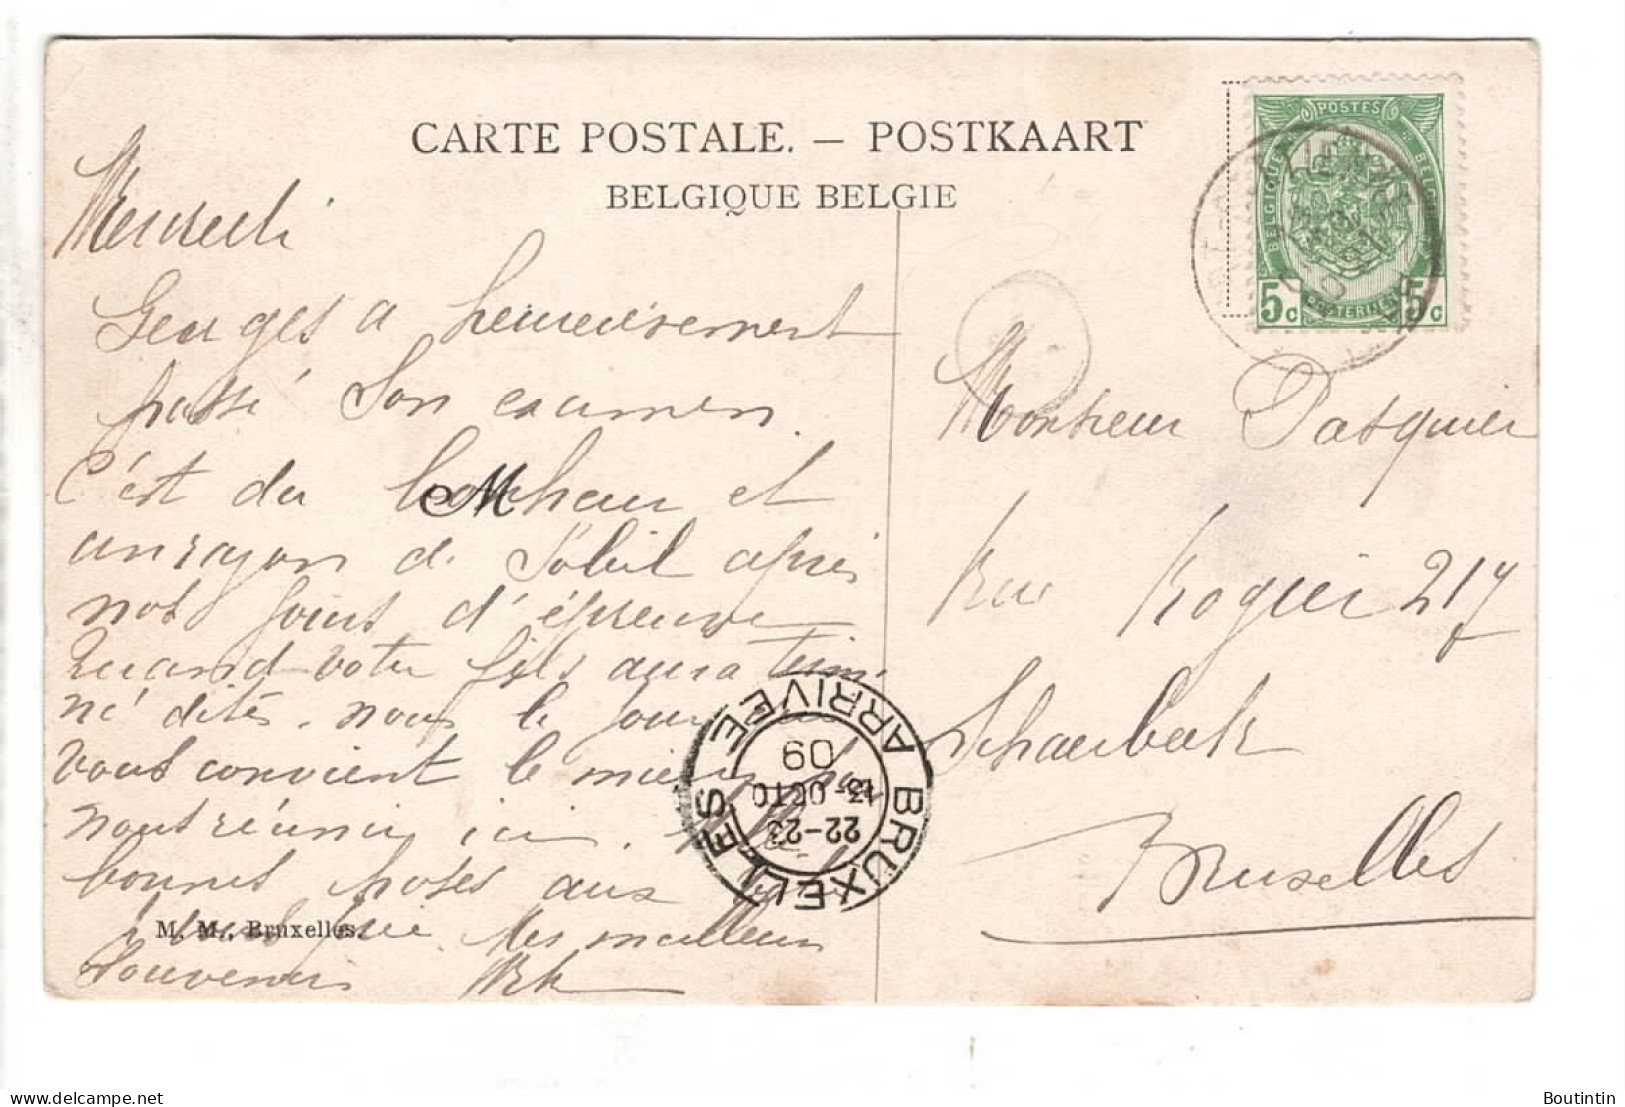 CARTE POSTALE. — POSTKAART
BELGIQUE BELGIE
POSTES
BELGIQUE
5c 5c
Mercredi
Georges a heureusement
passé son examen.
C'est du bonheur et
un rayon de soleil après
nos jours d'épreuve
Quand votre fils aura termi
né dites nous le jour
vous convient le mieux
nous réunir ici.
bonnes choses aux
meilleurs
Souvenirs
M. M., Bruxelles.
Monsieur Pasquier
Rue Rogier 217
Schaerbeek
Bruxelles
BRUXELLES ARRIVEE
22-23
13 OCTO
09
delcampe.net
Boutintin